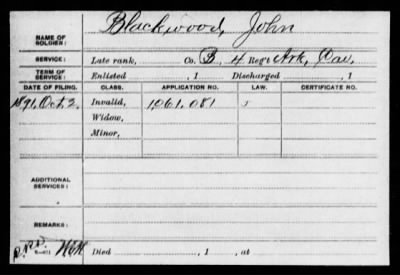 Blackwood, John
NAME OF SOLDIER:
SERVICE: Late rank, Co. B, 4 Reg't Ark. Cav.
TERM OF SERVICE: Enlisted , 1 Discharged , 1
DATE OF FILING. CLASS. APPLICATION NO. LAW. CERTIFICATE NO.
1891, Oct. 2. Invalid, 1061.081
Widow,
Minor,
ADDITIONAL SERVICES:
REMARKS:
Died , 1 , at